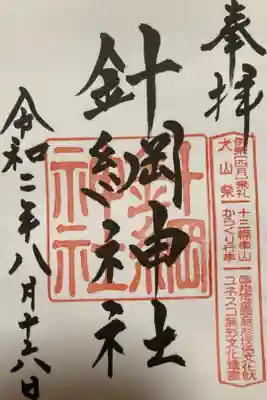 奉拝
針綱神社
令和二年八月十六日
針綱
神社
犬山祭
十三輌車山
からくり行事
国指定重要無形民俗文化財
ユネスコ無形文化遺産